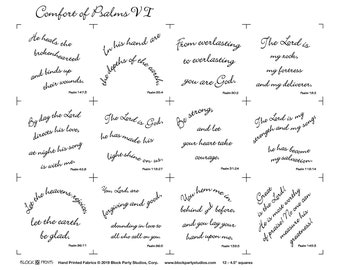 Comfort of Psalms VI
He heals the
brokenhearted
and binds up
their wounds.
Psalm 147:3
In his hand are
the depths of the earth.
Psalm 95:4
From everlasting
to everlasting
you are God.
Psalm 90:2
The Lord is
my rock,
my fortress
and my deliverer.
Psalm 18:2
By day the Lord
directs his love,
at night his song
is with me.
Psalm 42:8
The Lord is God,
he has made his
light shine on us.
Psalm 118:27
Be strong,
and let
your heart take
courage.
Psalm 31:24
The Lord is my
strength and my song;
he has become
my salvation.
Psalm 118:14
Let the heavens rejoice,
let the earth
be glad.
Psalm 96:11
You Lord, are
forgiving and good,
abounding in love to
all who call on you.
You hem me in
behind & before,
and you lay your
hand upon me.
Great
is the Lord!
He is most worthy
of praise! No one can
measure his
greatness!
Psalm 145:3
BLOCK PARTY
Hand Printed Fabrics © 2018 Block Party Studios, Corp. www.blockpartystudios.com 12 - 4.5" squares